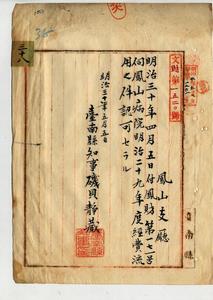 文財第一五二〇號
鳳山支廳
明治三十年四月五日付鳳財第一七一号
伺鳳山病院明治二十九年度經費流
用之件認可セラル
明治三十年五月五日
臺南縣知事磯貝靜藏
臺南縣